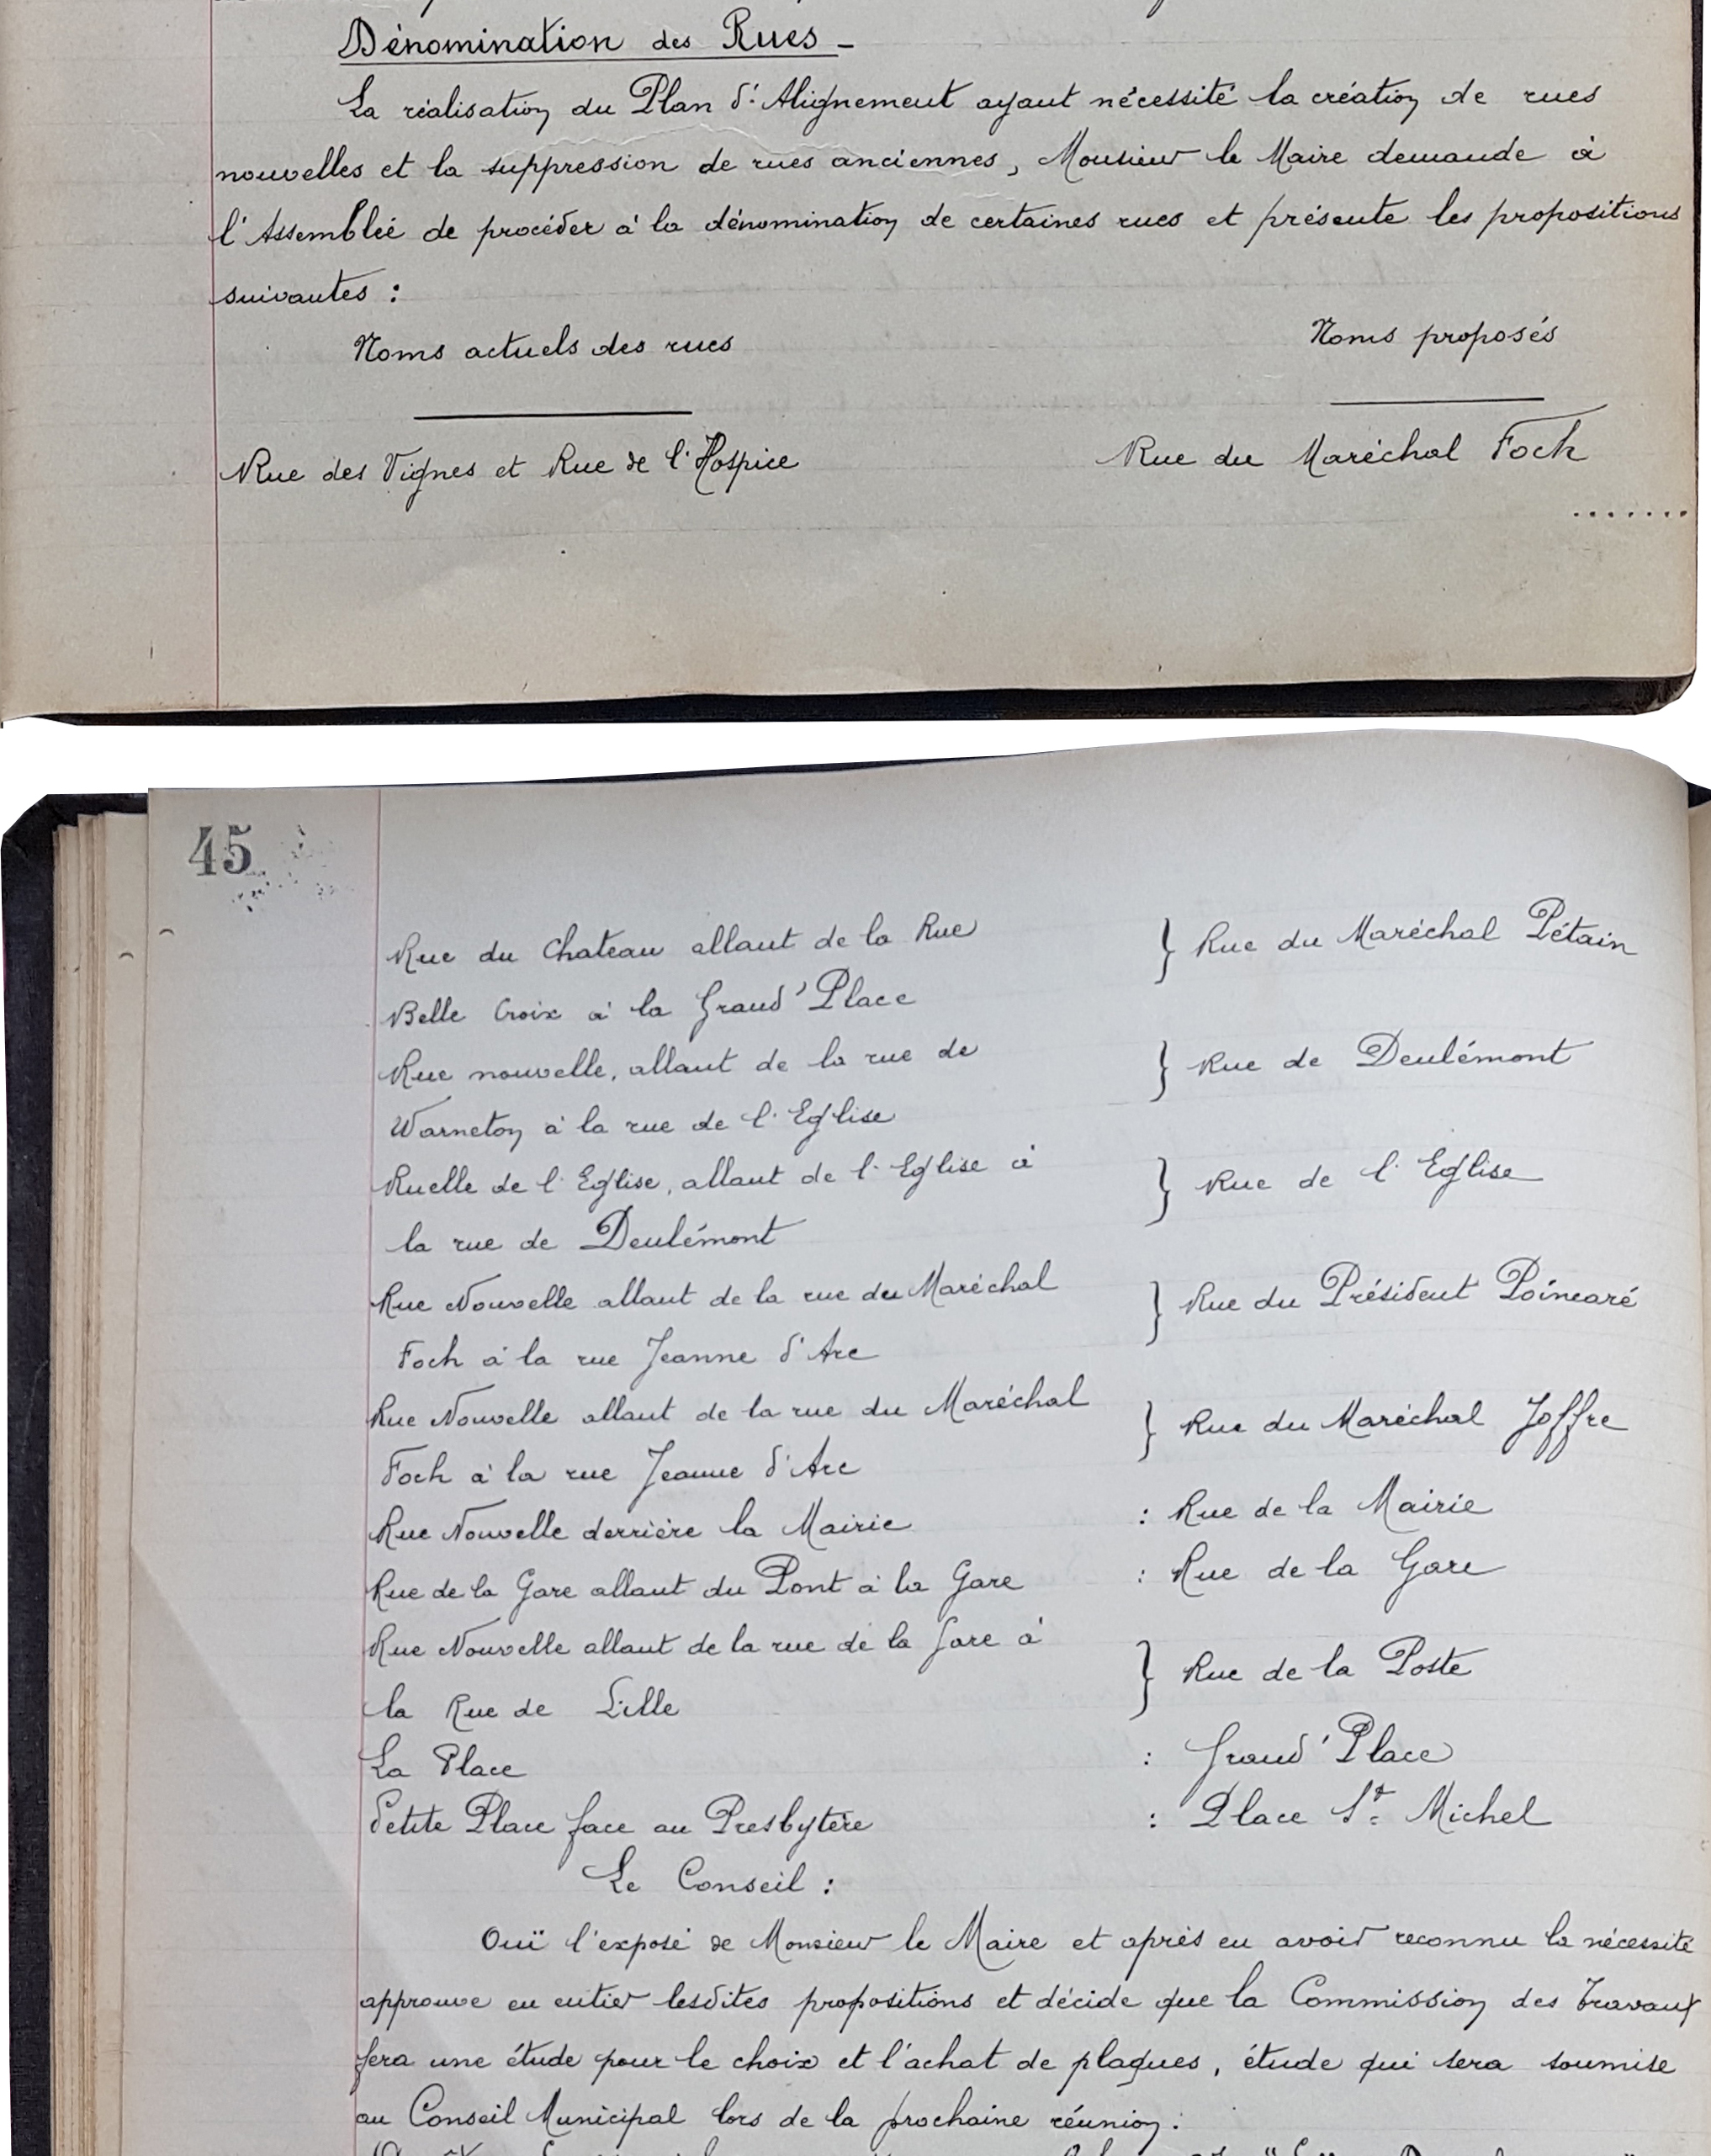 Dénomination des Rues -
La réalisation du Plan d'Alignement ayant nécessité la création de rues
nouvelles et la suppression de rues anciennes, Monsieur le Maire demande à
l'Assemblée de procéder à la dénomination de certaines rues et présente les propositions
suivantes :
Noms actuels des rues Noms proposés
Rue des Vignes et Rue de l'Hospice Rue du Maréchal Foch
.......
45
Rue du Chateau allant de la Rue } Rue du Maréchal Pétain
Belle Croix à la Grand'Place
Rue nouvelle, allant de la rue de } Rue de Deulémont
Warneton à la rue de l'Eglise
Ruelle de l'Eglise, allant de l'Eglise à } Rue de l'Eglise
la rue de Deulémont
Rue Nouvelle allant de la rue du Maréchal } Rue du Président Poincaré
Foch à la rue Jeanne d'Arc
Rue Nouvelle allant de la rue du Maréchal } Rue du Maréchal Joffre
Foch à la rue Jeanne d'Arc
Rue Nouvelle derrière la Mairie : Rue de la Mairie
Rue de la Gare allant du Pont à la Gare : Rue de la Gare
Rue Nouvelle allant de la rue de la Gare à } Rue de la Poste
la Rue de Lille
La Place : Grand'Place
Petite Place face au Presbytère : Place St Michel
Le Conseil :
Ouï l'exposé de Monsieur le Maire et après en avoir reconnu la nécessité
approuve en entier lesdites propositions et décide que la Commission des Travaux
fera une étude pour le choix et l'achat de plaques, étude qui sera soumise
au Conseil Municipal lors de la prochaine réunion.